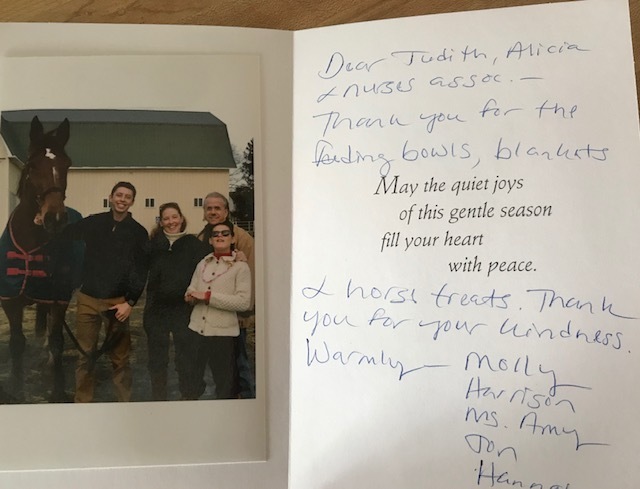 Dear Judith, Alicia
& nurses assoc. –
Thank you for the
feeding bowls, blankets
May the quiet joys
of this gentle season
fill your heart
with peace.
& horse treats. Thank
you for your kindness.
Warmly – Molly
Harrison
Ms. Amy
Jon